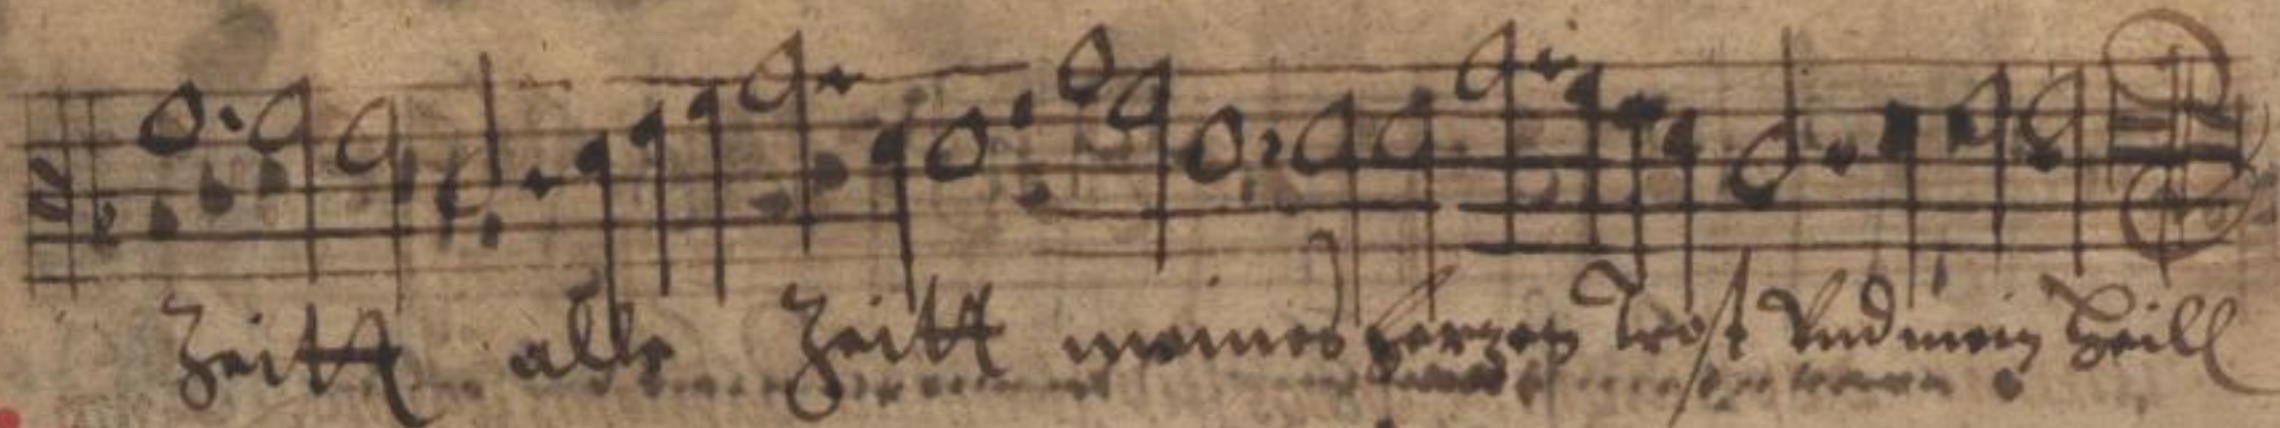 Zeitt alle Zeitt meines herzen trost Und mein Heill